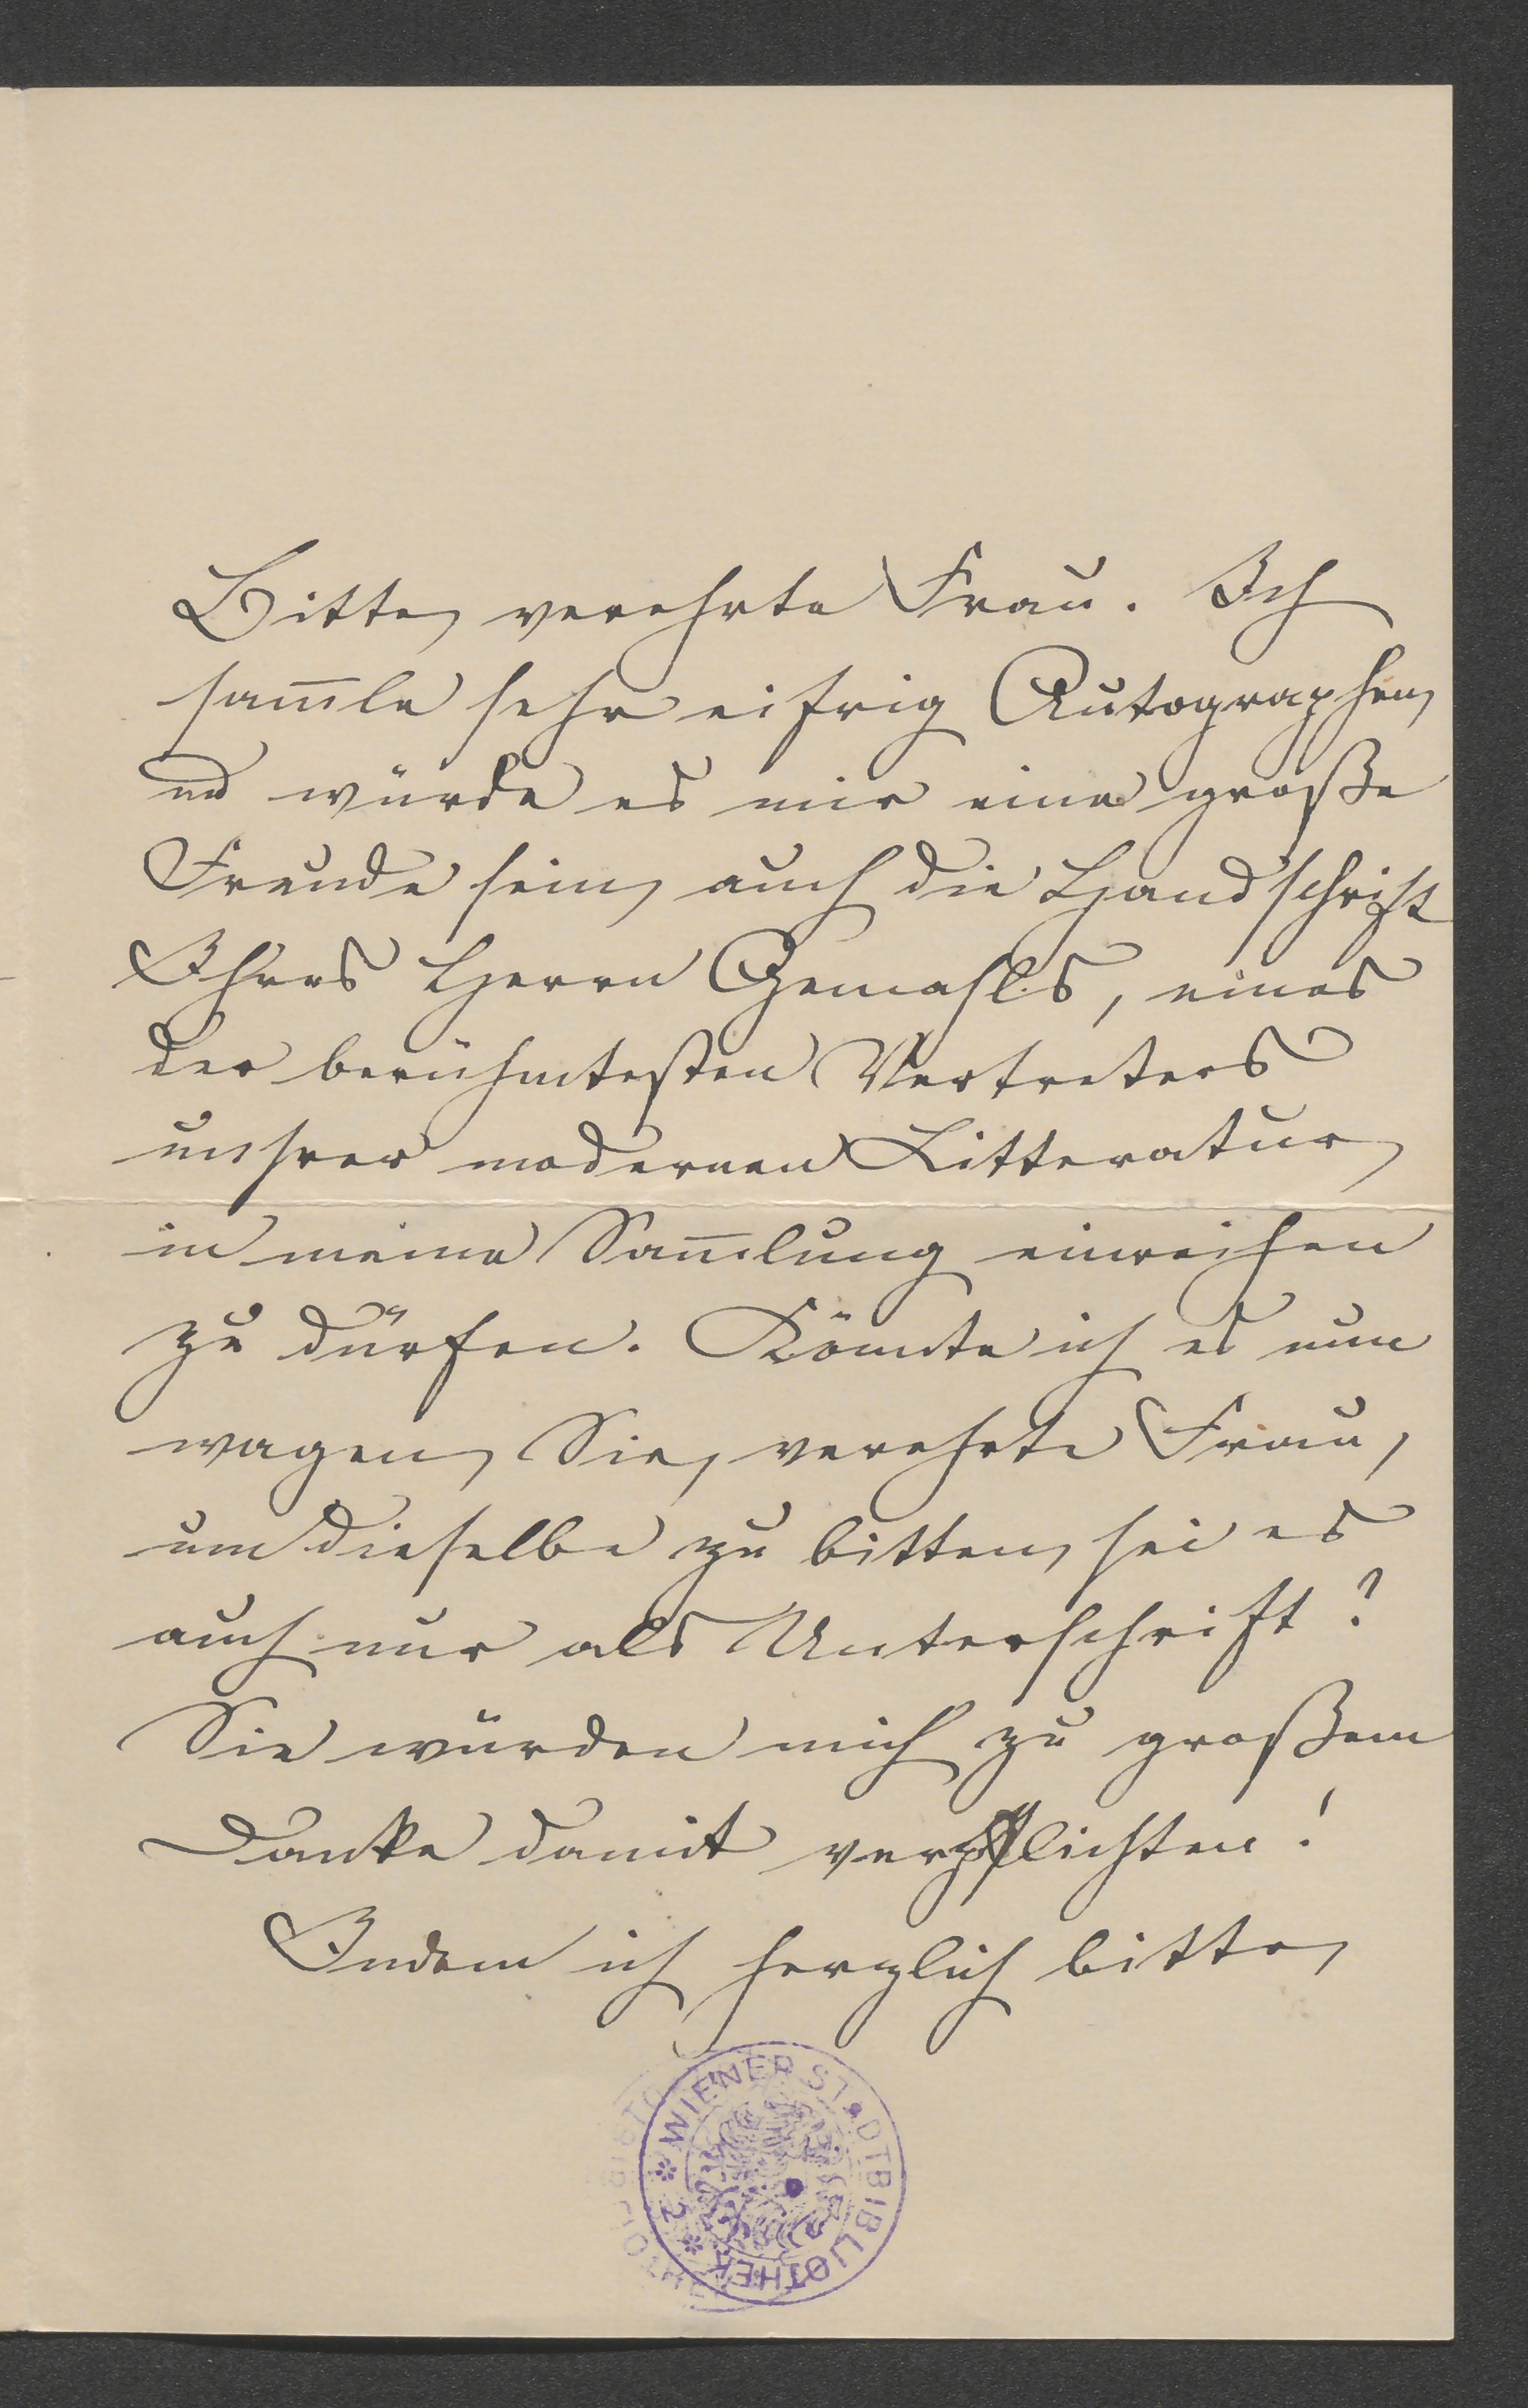 Bitte, verehrte Frau. Ich
sam̅le sehr eifrig Autographen,
und würde es mir eine große
Freude sein, auch die Handschrift
Ihres Herrn Gemahls, eines
der berühmtesten Vertreters
unsrer modernen Litteratur,
in meine Sam̅lung einreihen
zu dürfen. Könnte ich es nun
wagen, Sie, verehrte Frau,
um dieselbe zu bitten, sei es
auch nur als Unterschrift?
Sie würden mich zu großem
Danke damit verpflichten!
Indem ich herzlich bitte,
WIENER STADTBIBLIOTHEK * 2 *